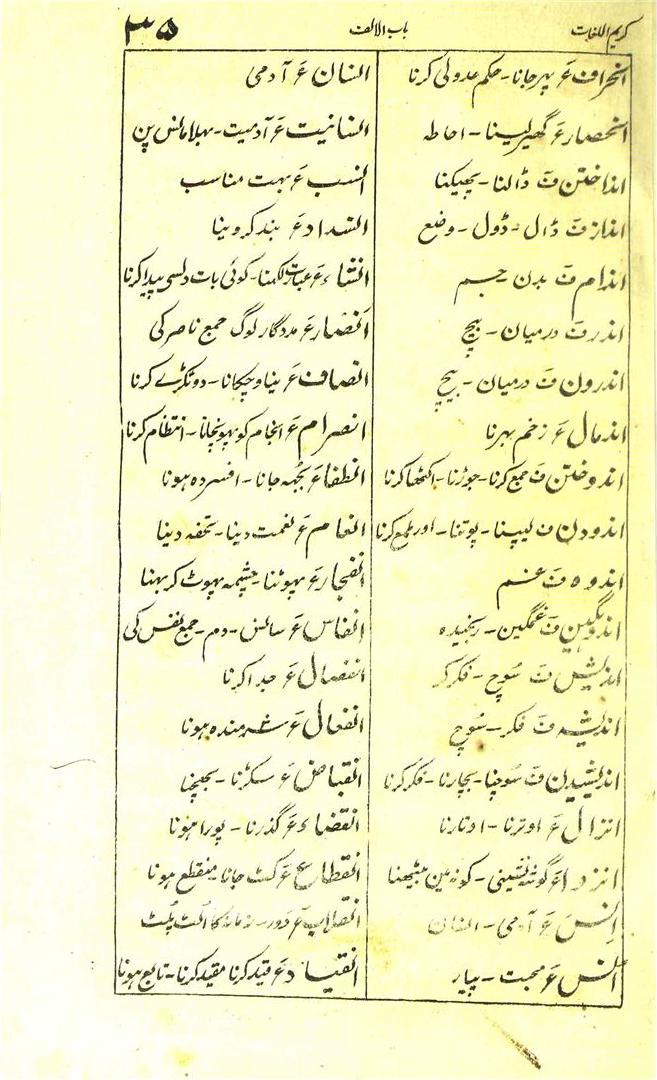 کریم اللغات
باب الالف
۳۵
انحراف ع پہر جانا۔ حکم عدولی کرنا
انحصار ع گھیر لینا۔ احاطہ
انداختن ف ڈالنا۔ پھیکنا
انداز ف ڈال۔ ڈول۔ وضع
اندام ف بدن جسم
اندر ف درمیان۔ بیچ
اندرون ف درمیان۔ بیچ
اندمال ع زخم بہرنا
اندوختن ف جمع کرنا۔ جوڑنا۔ اکٹھا کرنا
اندودن ف لیپنا۔ پوتنا۔ اور ملمع کرنا
اندوہ ف غم
اندوہگین ف غمگین۔ رنجیدہ
اندیش ف سوچ۔ فکر کر
اندیشہ ف فکر۔ سوچ
اندیشیدن ف سوچنا۔ بچارنا۔ فکر کرنا
انزال ع اوترنا۔ اوتارنا
انزوا ع گوشہ نشینی۔ کونہ مین بیٹھنا
اِنس ع آدمی۔ انسان
اُنس ع محبت۔ پیار
انسان ع آدمی
انسانیت ع آدمیت۔ بہلا مانس پن
انسب ع بہت مناسب
انسداد ع بند کر دینا
انشاء ع عبارت لکہنا۔ کوئی بات دلسی پیدا کرنا
انصار ع مددگار لوگ جمع ناصر کی
انصاف ع نیاو چکانا۔ دو ٹکڑے کرنا
انصرام ع انجام کو پہونچانا۔ انتظام کرنا
انطفا ع بجھہ جانا۔ افسردہ ہونا
انعام ع نعمت دینا۔ تحفہ دینا
انفجار ع پہوٹنا۔ چشمہ پہوٹ کر بہنا
انفاس ع سانس۔ دم۔ جمع نفس کی
انفصال ع جدا کرنا
انفعال ع شرمندہ ہونا
انقباض ع سکڑنا۔ بھچنا
انقضاء ع گذرنا۔ پورا ہونا
انقطاع ع کٹ جانا منقطع ہونا
انقلاب ع دور۔ زمانہ کا الٹ پلٹ
انقیاد ع قید کرنا مقید کرنا۔ تابع ہونا